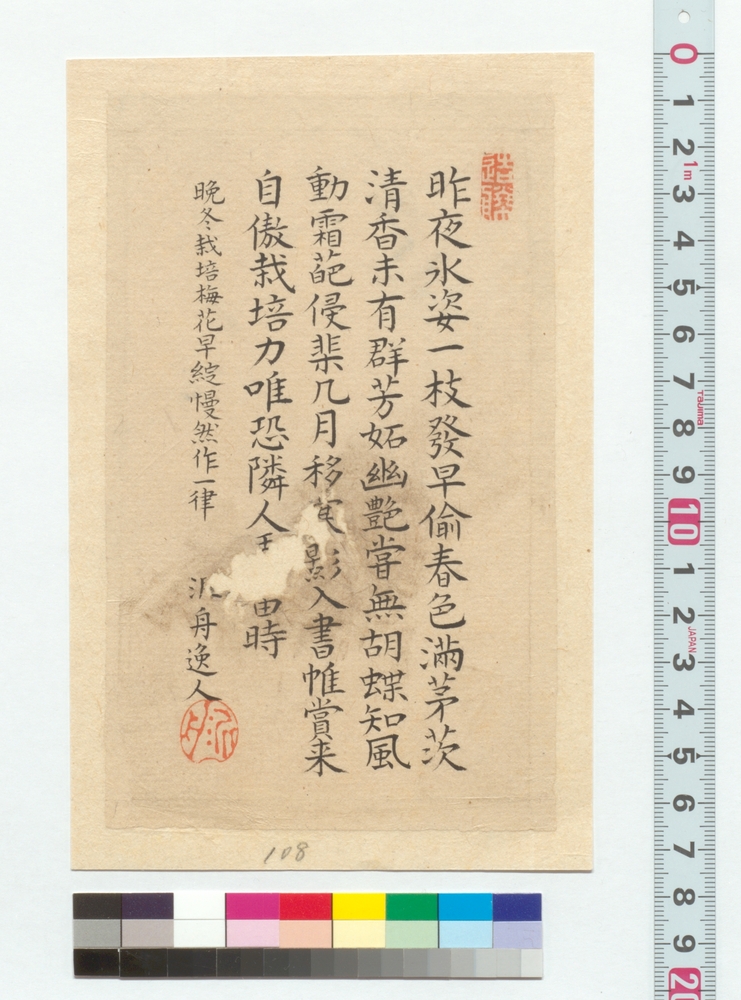 昨夜氷姿一枝發早偷春色滿茅茨
清香未有群芳妬幽艶嘗無胡蝶知風
動霜葩侵棐几月移寒影入書帷賞来
自傲栽培力唯恐隣人 時
晩冬栽培梅花早綻慢然作一律
泛舟逸人
108
0
1
2
1m
3
4
5
6
7
Tajima
8
9
10
1
2
JAPAN
3
4
5
6
7
8
9
20